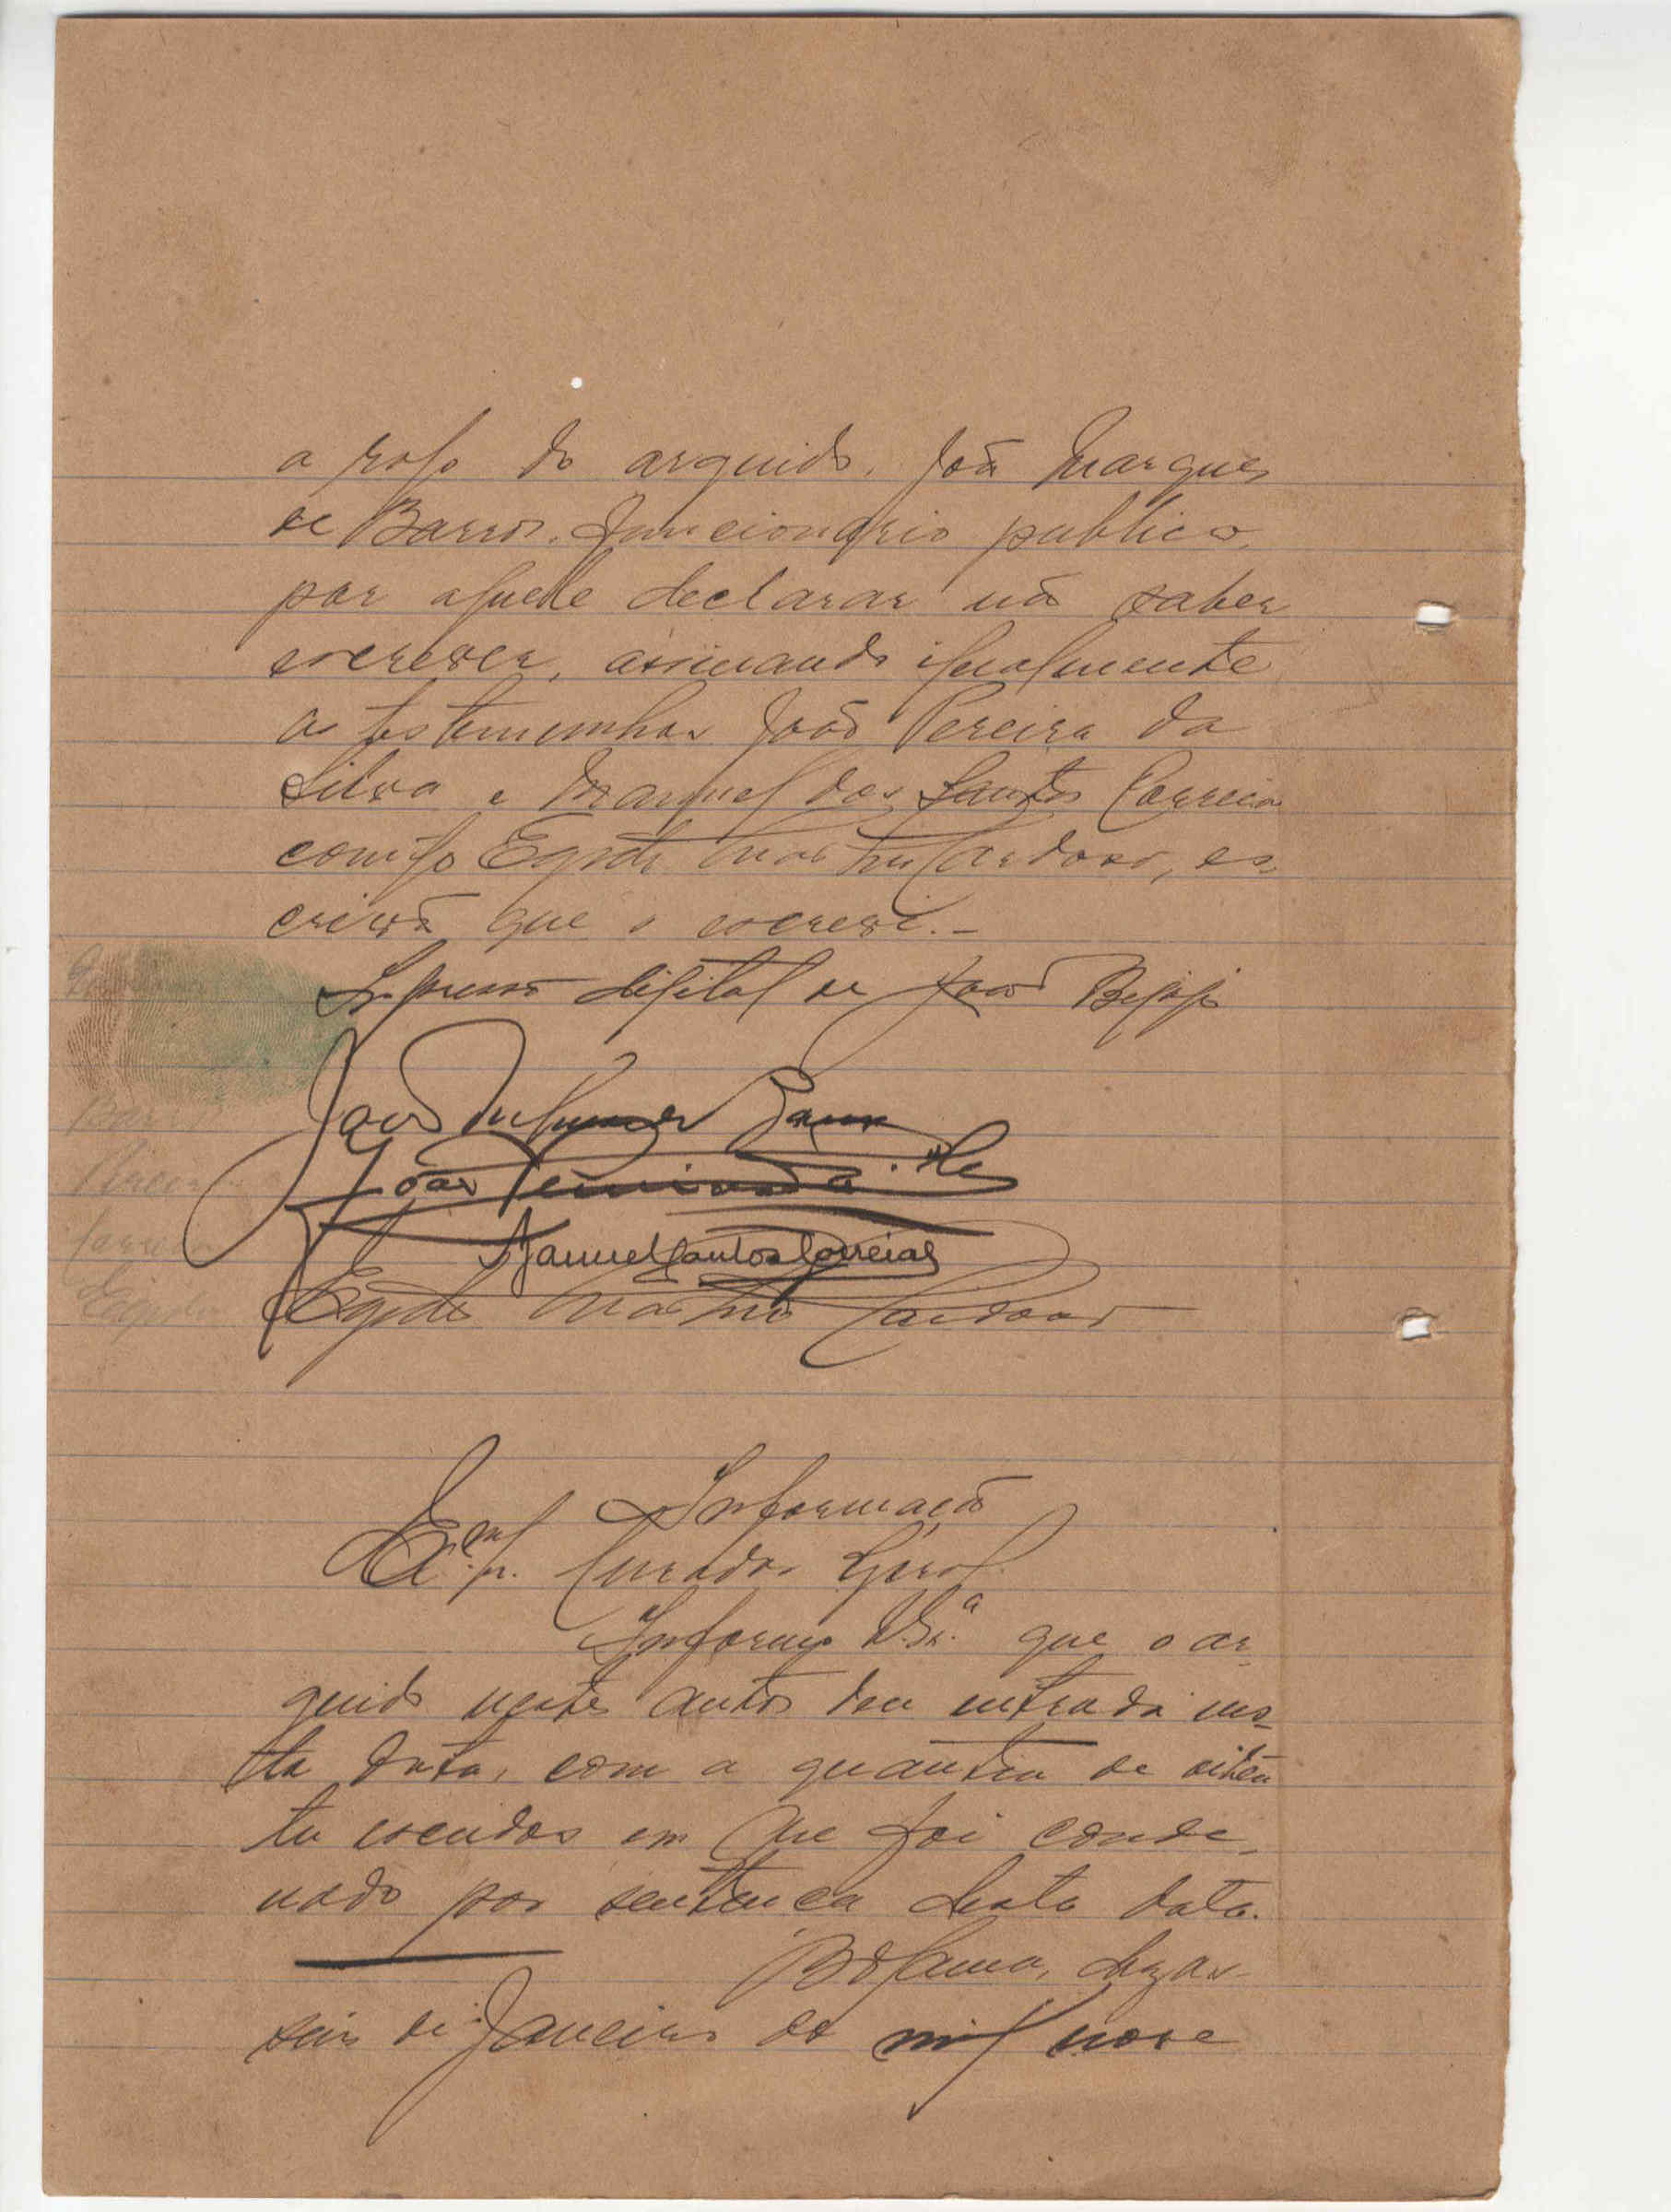 a rogo do arguido, João Marques
de Barros, funcionario publico,
por aquele declarar não saber
escrever, assinando igualmente
as testemunhas João Pereira da
Silva e Manuel dos Santos Correia
comigo Egidio Martins Cardoso, es-
crivão que o escrevi.-
Impressão digital de João
João Marques Barros
João Pereira da Silva
Manuel Santos Correia
Egidio Martins Cardoso
Barros
Pereira
Correia
Egidio
Informação
Exmº. Sr. Curador Geral
Informo V. Sr.ª que o ar-
guido nestes autos deu entrada nes-
ta data, com a quantia de oiten
ta escudos em que foi conde-
nado por sentença desta data.
Bolama, dezas-
seis de Janeiro de mil nove